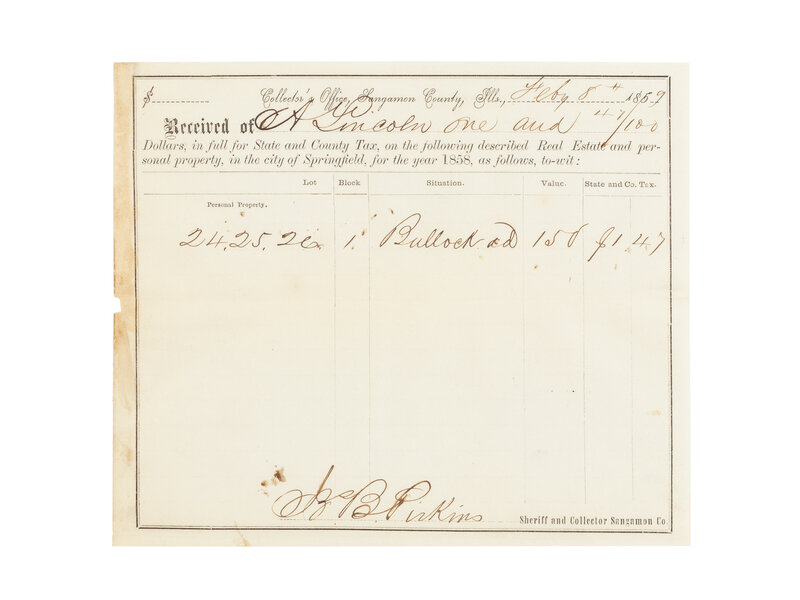 $ Collector's Office, Sangamon County, Ills., Feby 8th 1859
Received of A Lincoln one and 47/100
Dollars, in full for State and County Tax, on the following described Real Estate and per-
sonal property, in the city of Springfield, for the year 1858, as follows, to-wit:
Lot Block Situation. Value. State and Co. Tax.
Personal Property.
24, 25, 26 1 Bullock ad 150 $1 47
B Perkins
Sheriff and Collector Sangamon Co.